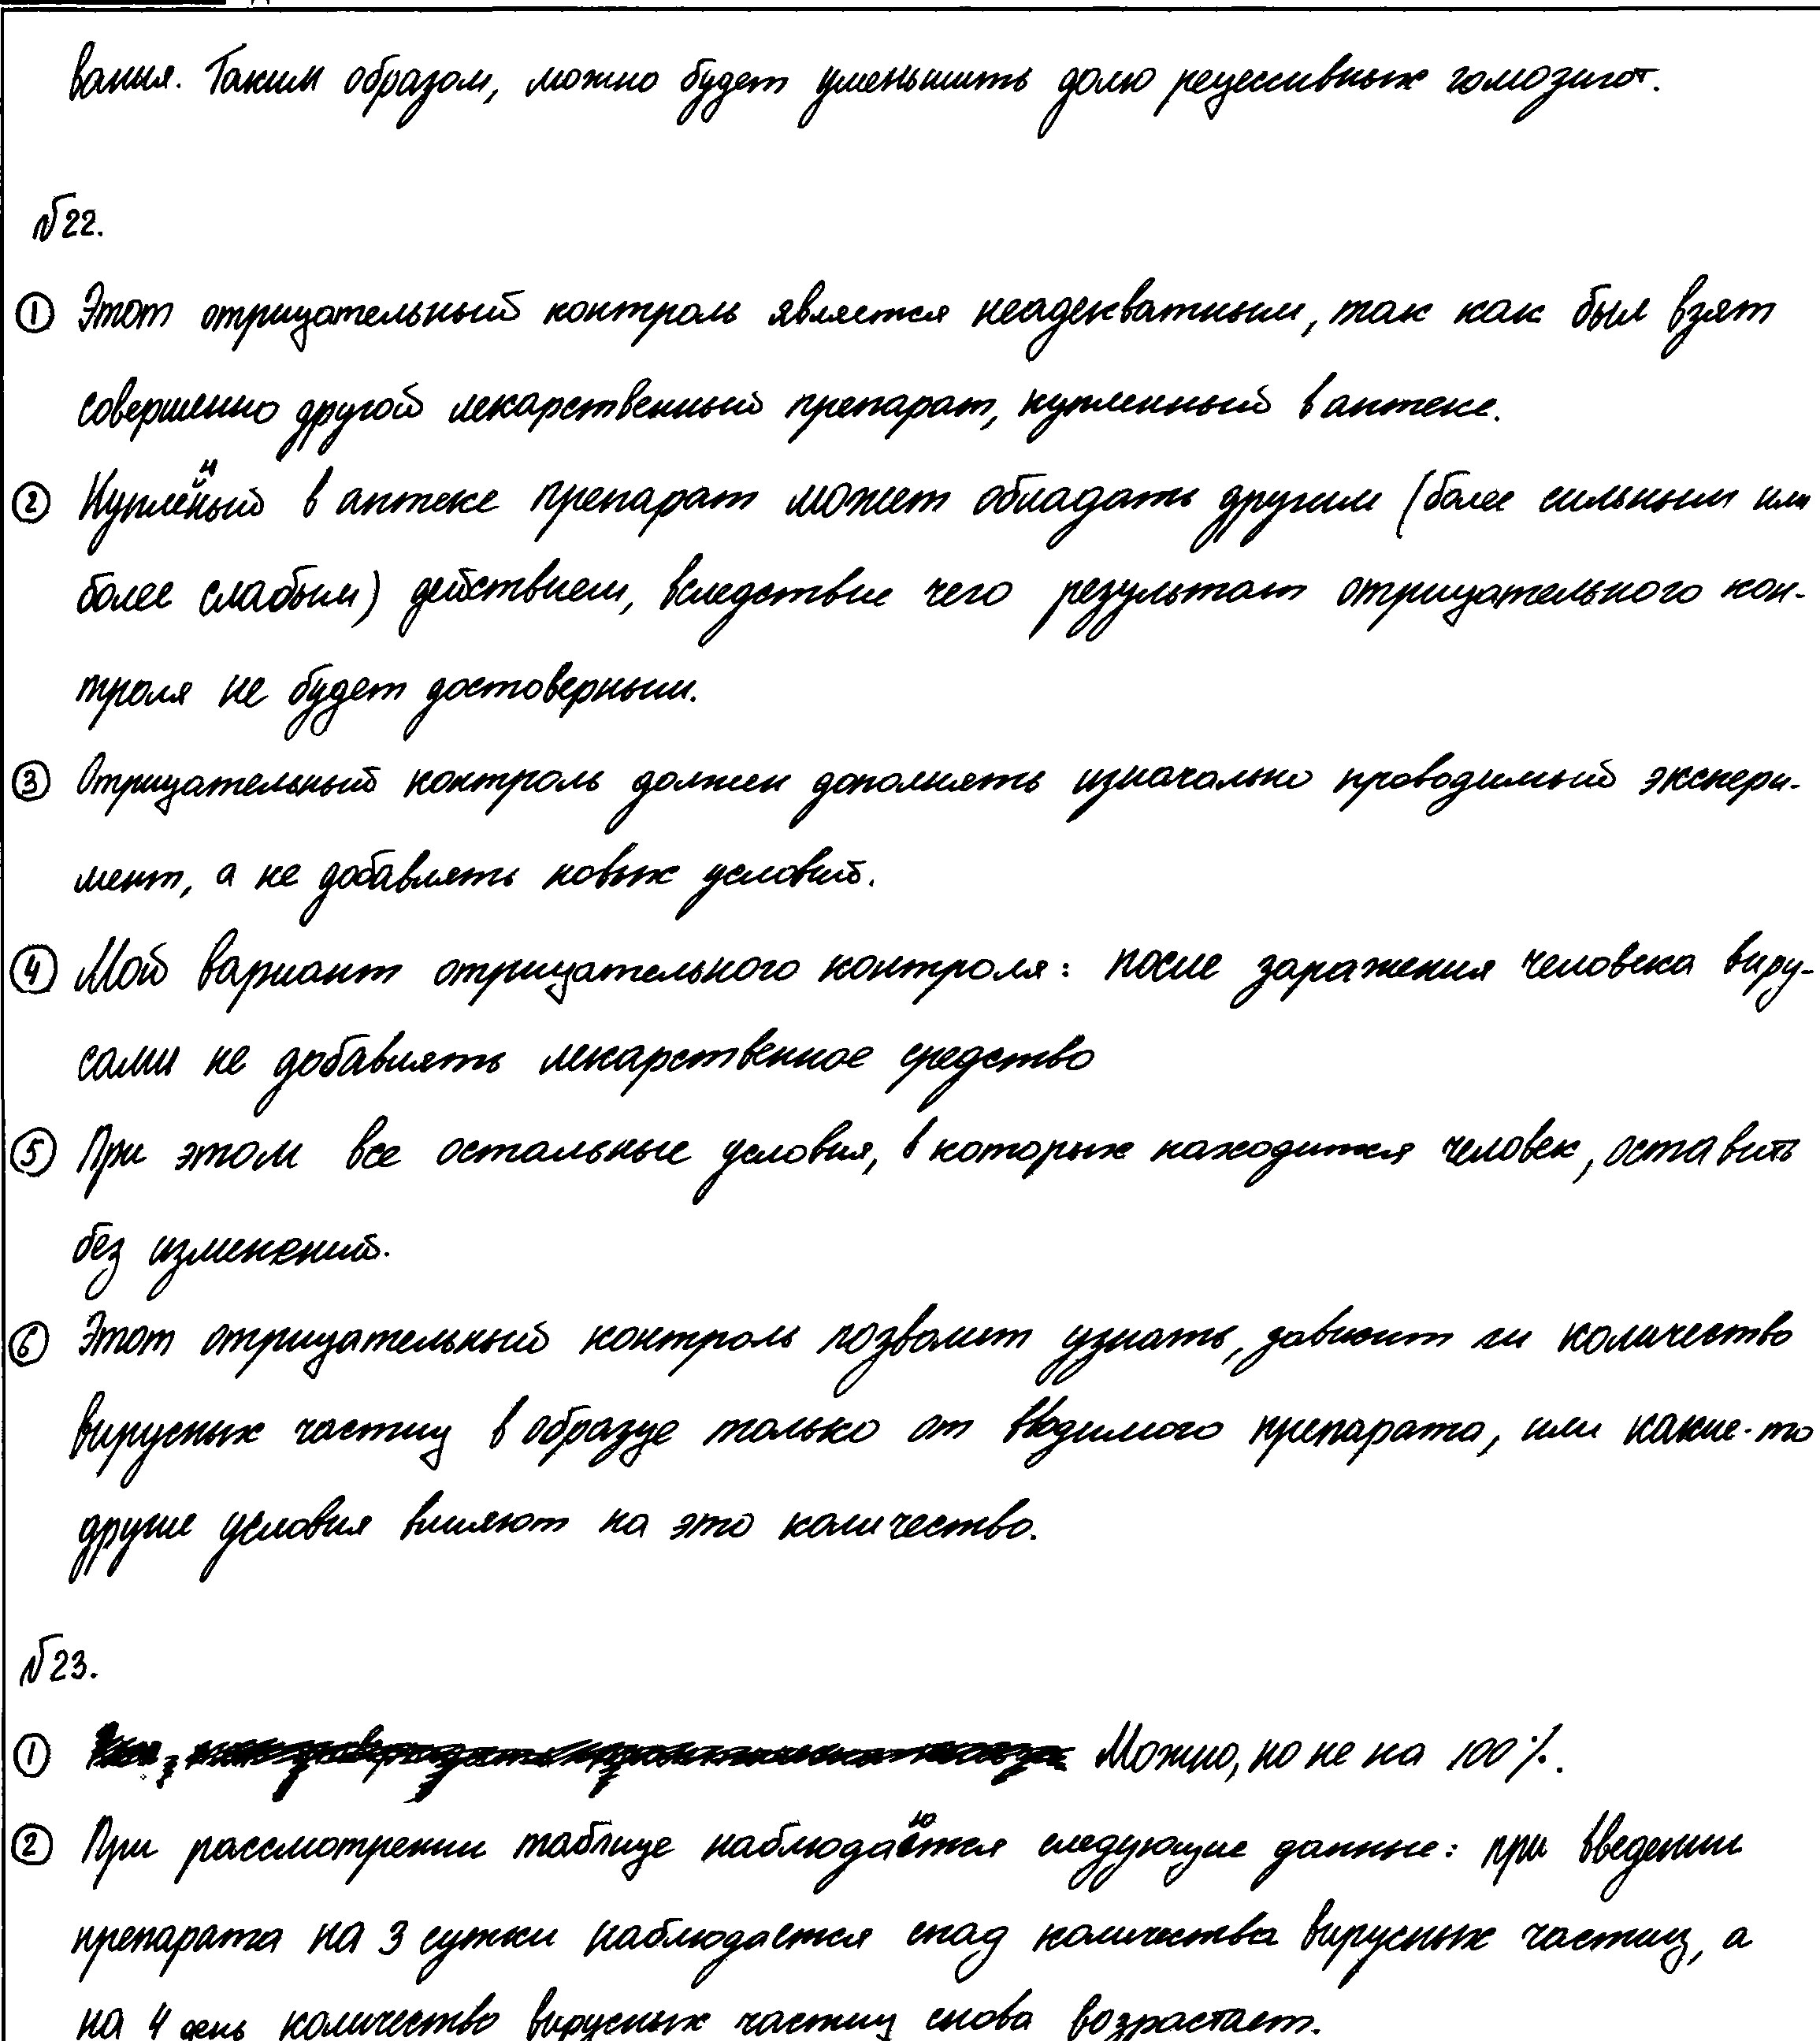 вания. Таким образом, можно будет уменьшить долю рецессивных гомозигот.
№22.
① Этот отрицательный контроль является неадекватным, так как был взят
совершенно другой лекарственный препарат, купленный в аптеке.
② Купленный в аптеке препарат может обладать другим (более сильным или
более слабым) действием, вследствие чего результат отрицательного кон-
троля не будет достоверным.
③ Отрицательный контроль должен дополнять изначально проводимый экспери-
мент, а не добавлять новых условий.
④ Мой вариант отрицательного контроля: после заражения человека виру-
сами не добавлять лекарственное средство
⑤ При этом все остальные условия, в которых находится человек, оставить
без изменений.
⑥ Этот отрицательный контроль позволит узнать, зависит ли количество
вирусных частиц в образце только от вводимого препарата, или какие-то
другие условия влияют на это количество.
№23.
① Можно, но не на 100%.
② При рассмотрении таблице наблюдаются следующие данные: при введении
препарата на 3 сутки наблюдается спад количества вирусных частиц, а
на 4 день количество вирусных частиц снова возрастает.